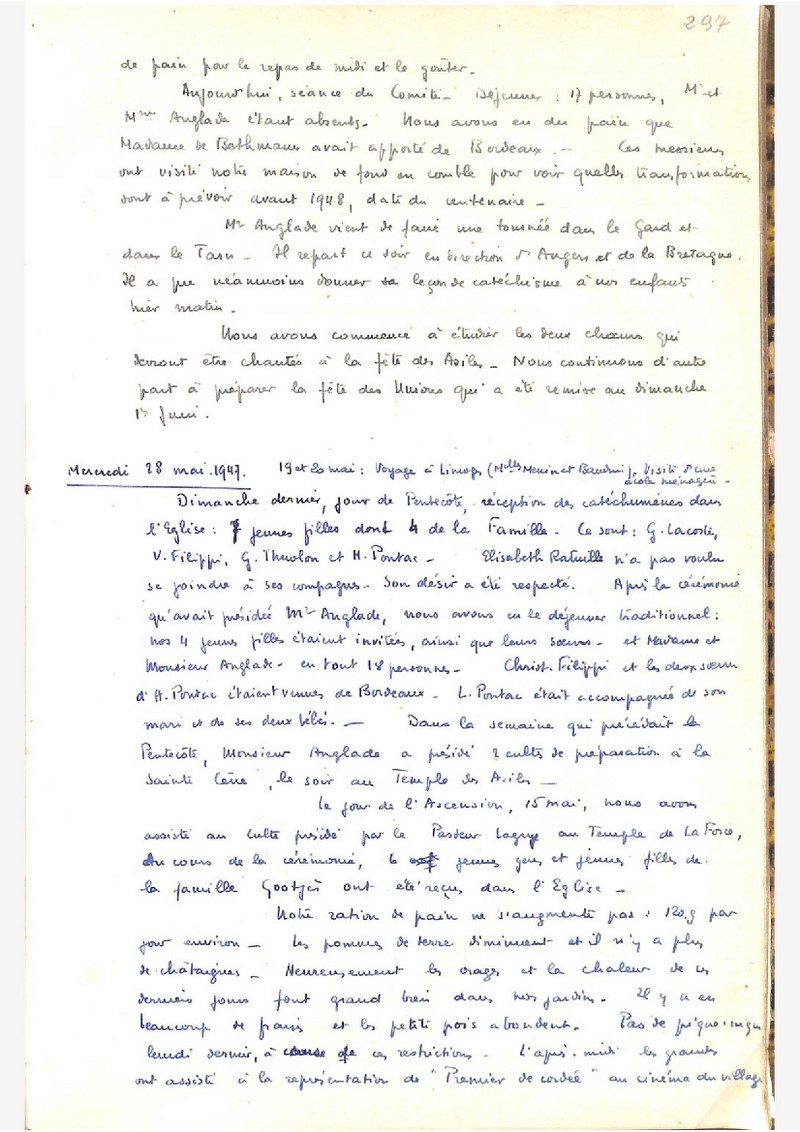 297
de pain pour le repas de midi et le goûter.
Aujourd'hui, séance du Comité - Déjeuner : 17 personnes, Mr et
Mme Anglade étant absents. Nous avons eu du pain que
Madame de Bethmann avait apporté de Bordeaux. - Ces messieurs
ont visité notre maison de fond en comble pour voir quelles transformations
sont à prévoir avant 1948, date du centenaire -
Mr Anglade vient de faire une tournée dans le Gard et
dans le Tarn - Il repart ce soir en direction d'Angers et de la Bretagne.
Il a pu néanmoins donner sa leçon de catéchisme à nos enfants
hier matin.
Nous avons commencé à étudier les deux chœurs qui
devront être chantés à la fête des Asiles - Nous continuons d'autre
part à préparer la fête des Unions qui a été remise au dimanche
1er Juin.
Mercredi 28 mai 1947. 19 et 20 mai : Voyage à Limoges (Melles Menin et Baudin). Visite d'une
école ménagère -
Dimanche dernier, jour de Pentecôte, réception des catéchumènes dans
l'Eglise : 7 jeunes filles dont 4 de la Famille - Ce sont : G. Lacoste,
V. Filippi, G. Thuolon et H. Pontac - Elisabeth n'a pas voulu
se joindre à ses compagnes - Son désir a été respecté. Après la cérémonie
qu'avait présidée Mr Anglade, nous avons eu le déjeuner traditionnel :
nos 4 jeunes filles étaient invitées, ainsi que leurs sœurs - et Madame et
Monsieur Anglade - en tout 18 personnes - Christ. Filippi et les deux sœurs
d'H. Pontac étaient venues de Bordeaux - L. Pontac était accompagnée de son
mari et de ses deux bébés. - Dans la semaine qui précédait la
Pentecôte, Monsieur Anglade a présidé 2 cultes de préparation à la
Sainte Cène, le soir au Temple des Asiles -
Le jour de l'Ascension, 15 mai, nous avons
assisté au culte présidé par le Pasteur au Temple de La Force,
Au cours de la cérémonie, 6 jeunes gens et jeunes filles de
la famille Gootjes ont été reçus dans l'Eglise -
Notre ration de pain ne s'augmente pas : 120 g par
jour environ - Les pommes de terre diminuent et il n'y a plus
de châtaignes - Heureusement les orages et la chaleur de ces
derniers jours font grand bien dans nos jardins - Il y a eu
beaucoup de fraises et les petits pois abondent. Pas de pique-nique
lundi dernier, à cause de ces restrictions - L'après-midi les grandes
ont assisté à la représentation de "Premier de cordée" au cinéma du village